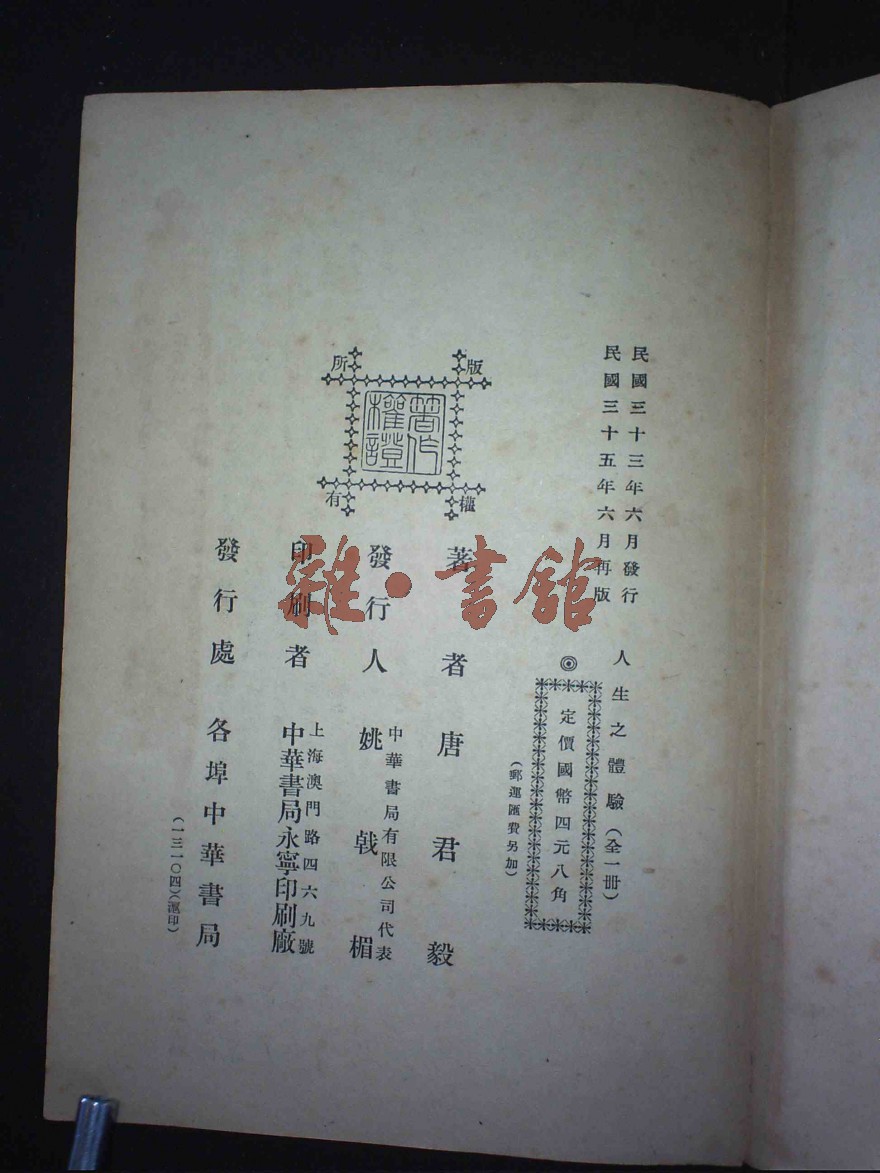 民國三十三年六月發行
民國三十五年六月再版
人生之體驗（全一冊）
◎定價國幣四元八角
（郵運匯費另加）
版權所有
著作權證
著者 唐君毅
發行人 中華書局有限公司代表
姚戟楣
印刷者 上海澳門路四六九號
中華書局永寧印刷廠
發行處 各埠中華書局
（一三一〇四）（滬印）
雜·書館